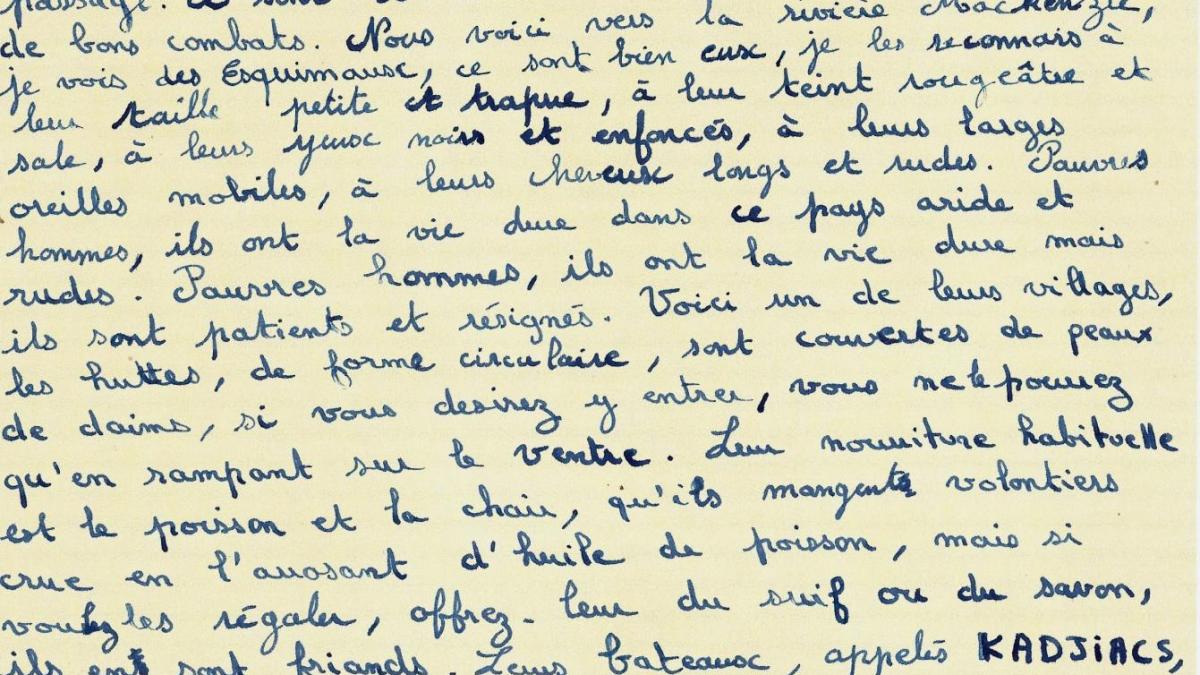 passage. Ce sont de
de bons combats. Nous voici vers la rivière Mackenzie,
je vois des Esquimaux, ce sont bien eux, je les reconnais à
leur taille petite et trapue, à leur teint rougeâtre et
sale, à leurs yeux noirs et enfoncés, à leurs larges
oreilles mobiles, à leurs cheveux longs et rudes. Pauvres
hommes, ils ont la vie dure dans ce pays aride et
rudes. Pauvres hommes, ils ont la vie dure mais
ils sont patients et résignés. Voici un de leurs villages,
les huttes, de forme circulaire, sont couvertes de peaux
de daims, si vous desirez y entrer, vous ne le pouvez
qu'en rampant sur le ventre. Leur nourriture habituelle
est le poisson et la chair, qu'ils mangent volontiers
crue en l'arrosant d'huile de poisson, mais si
voulez les régaler, offrez-leur du suif ou du savon,
ils en sont friands. Leurs bateaux, appelés KADJiACS,